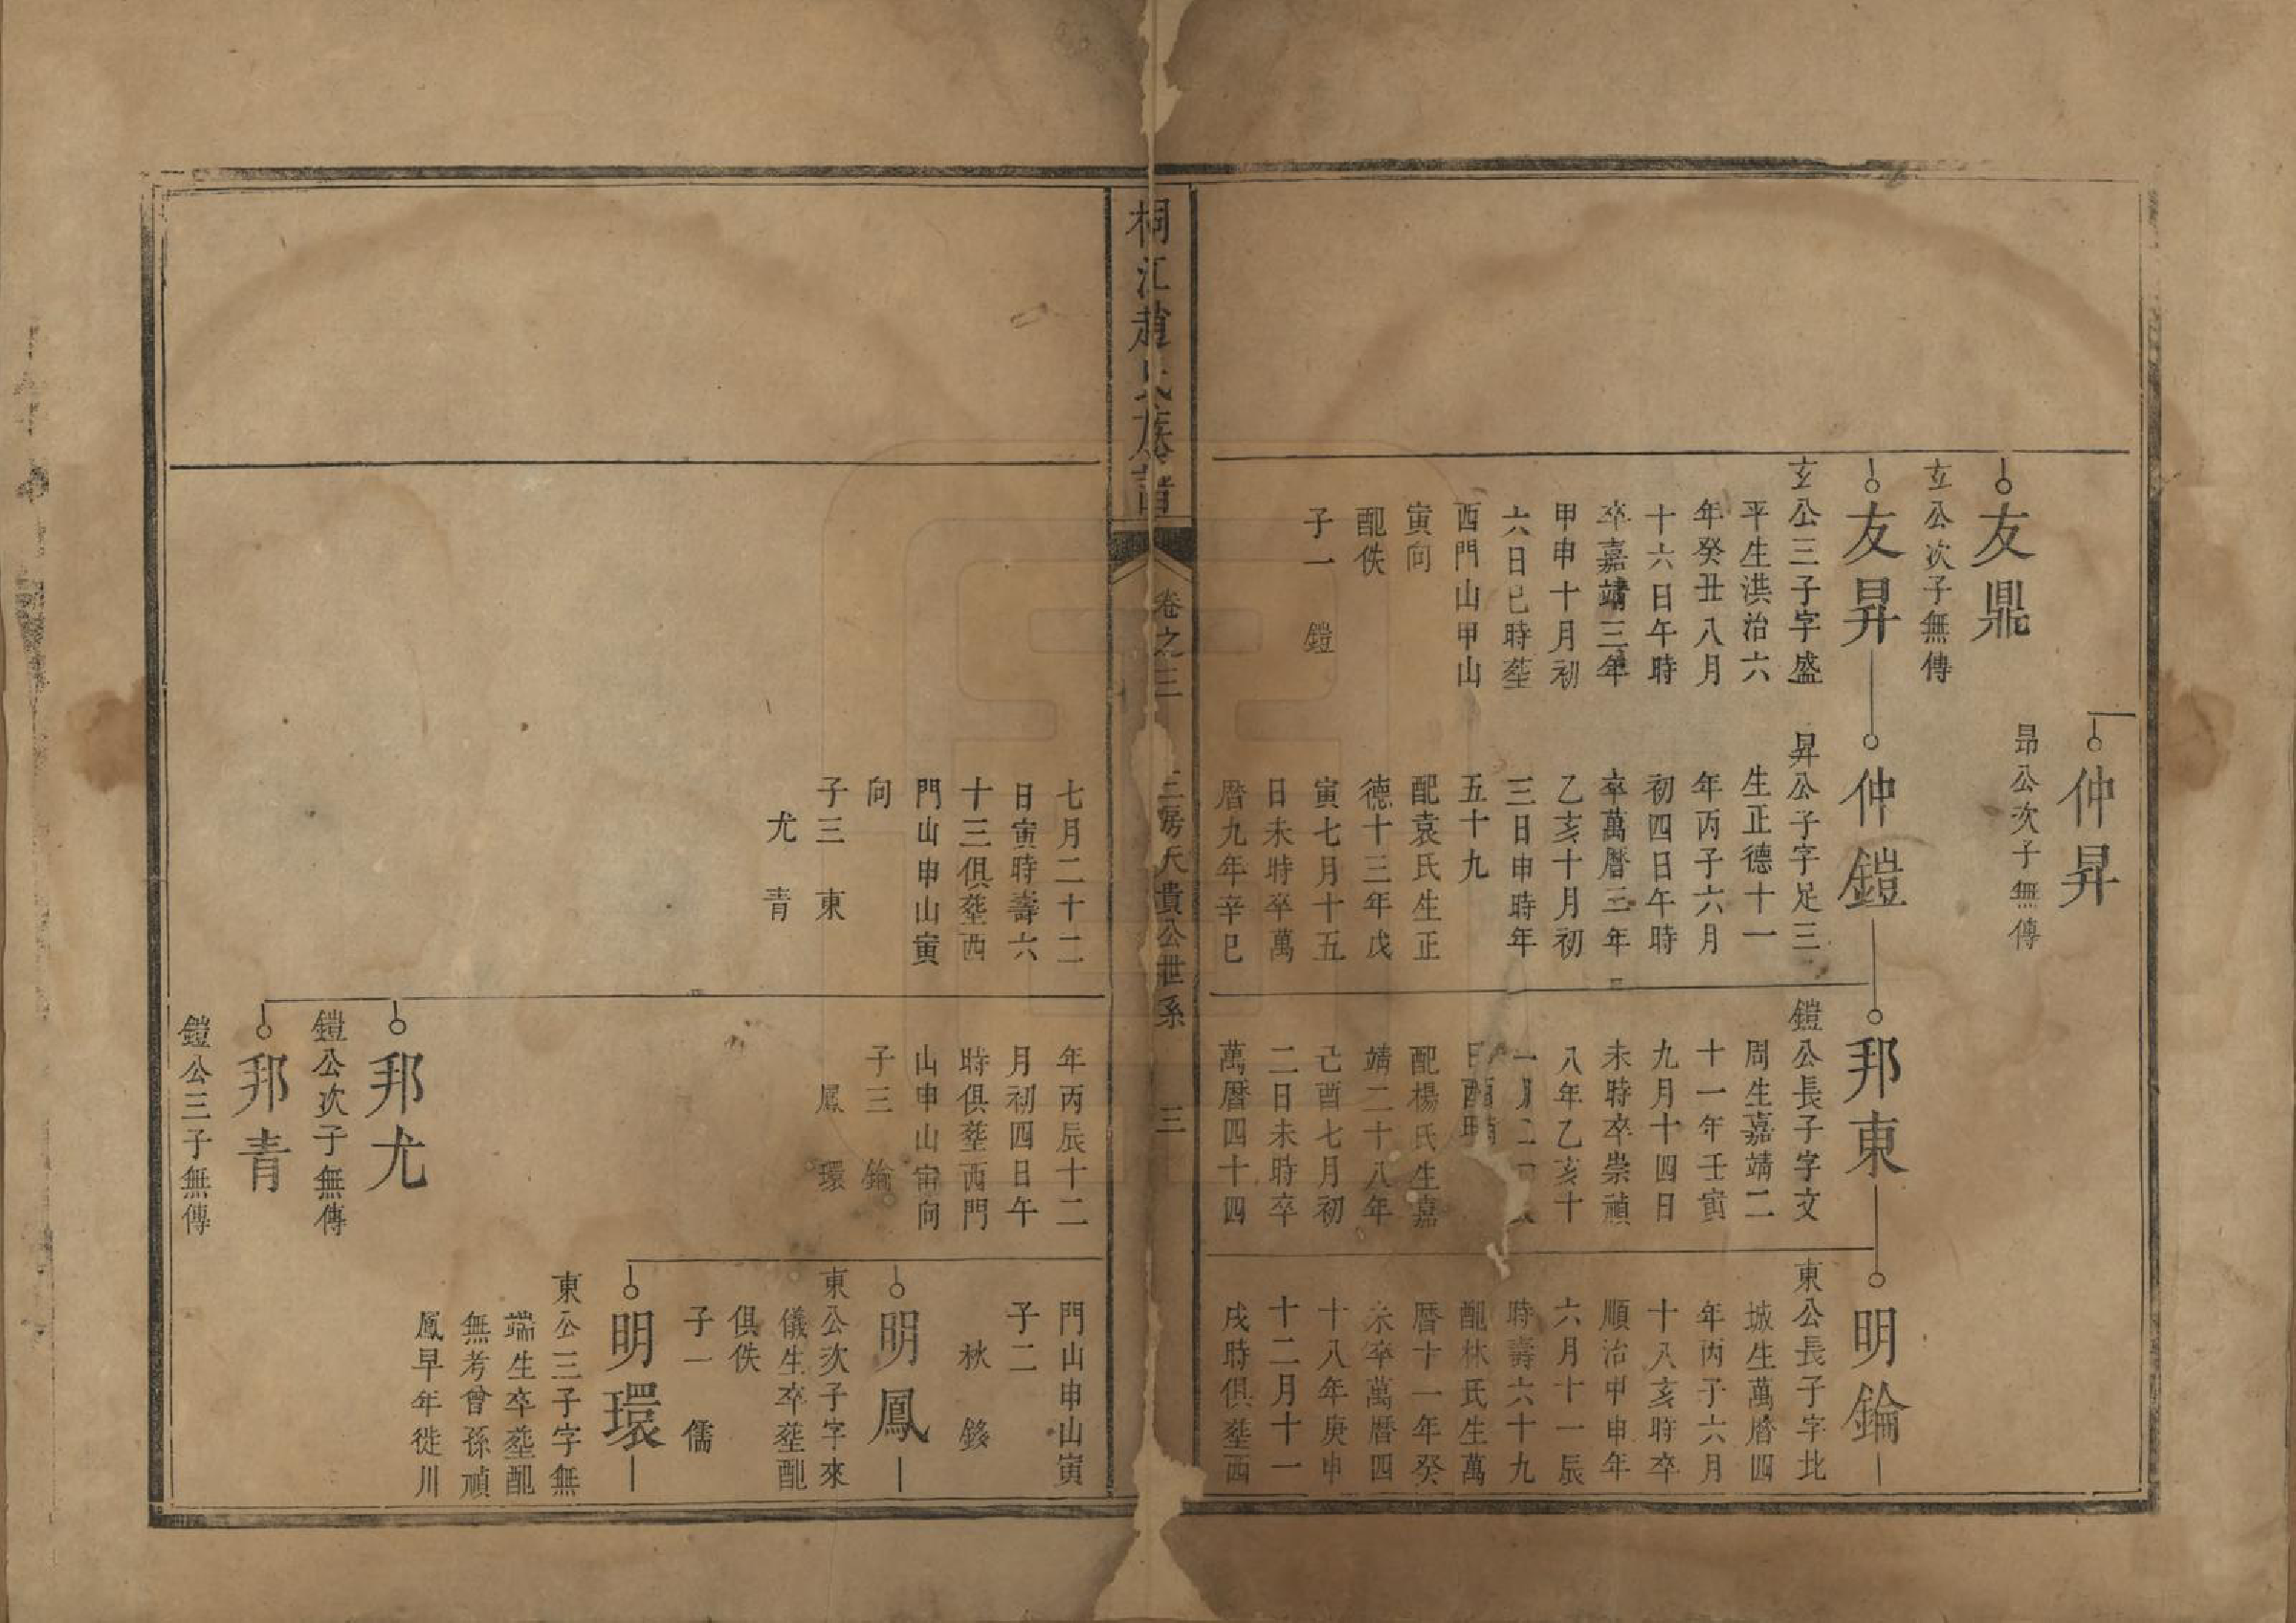 仲昇
昂公次子無傳
友鼎
玄公次子無傳
友昇
玄公三子字盛
平生洪治六
年癸丑八月
十六日午時
卒嘉靖三年
甲申十月初
六日巳時塟
西門山甲山
寅向
配佚
子一 鎧
仲鎧
昇公子字足三
生正德十一
年丙子六月
初四日午時
卒萬曆三年
乙亥十月初
三日申時年
五十九
配袁氏生正
德十三年戊
寅七月十五
日未時卒萬
曆九年辛巳
七月二十二
日寅時壽六
十三俱塟西
門山申山寅
向
子三 東
尤 青
邦東
鎧公長子字文
周生嘉靖二
十一年壬寅
九月十四日
未時卒崇禎
八年乙亥十
一月二
日酉時
配楊氏生嘉
靖二十八年
己酉七月初
二日未時卒
萬曆四十四
年丙辰十二
月初四日午
時俱塟西門
山申山寅向
子三 錀
鳳 環
邦尤
鎧公次子無傳
邦青
鎧公三子無傳
明錀
東公長子字北
城生萬曆四
年丙子六月
十八亥時卒
順治甲申年
六月十一辰
時壽六十九
配林氏生萬
曆十一年癸
未卒萬曆四
十八年庚申
十二月十一
戌時俱塟西
門山申山寅
子二
秋 錽
明鳳
東公次子字來
儀生卒塟配
俱佚
子一 儒
明環
東公三子字無
端生卒塟配
無考曾孫禎
鳳早年徙川
桐江趙氏族譜
卷之三
三房大貴公世系
三